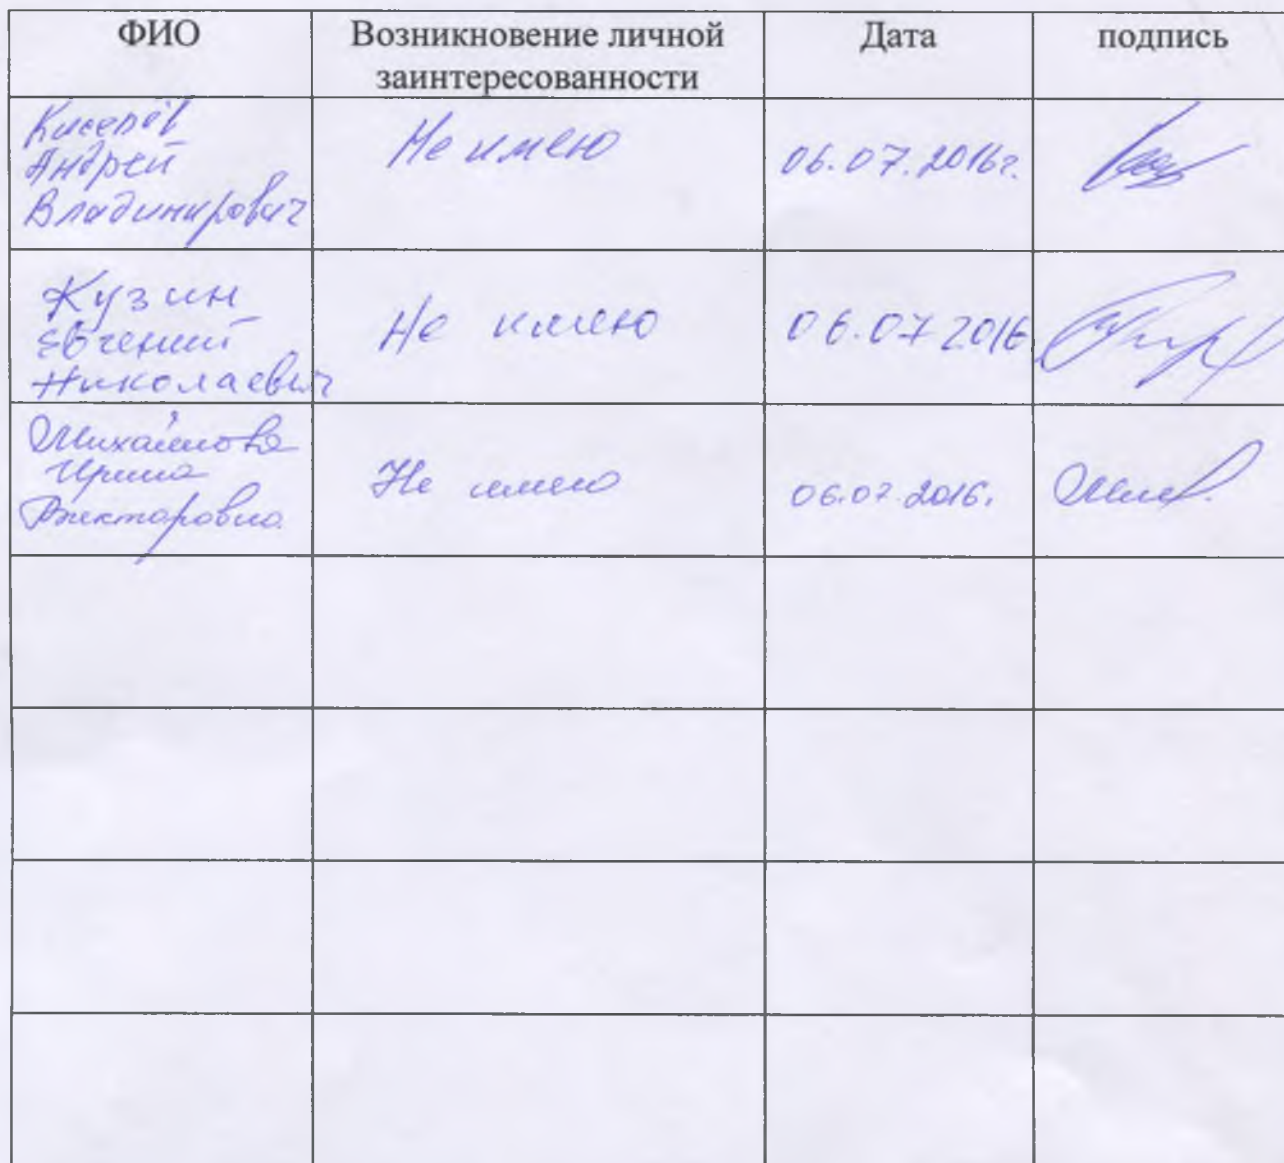 ФИО
Возникновение личной
заинтересованности
Дата
подпись
Киселёв
Андрей
Владимирович
Не имею
06.07.2016г.
Кузин
Евгений
Николаевич
Не имею
06.07 2016
Михайлова
Ирина
Викторовна
Не имею
06.07.2016.